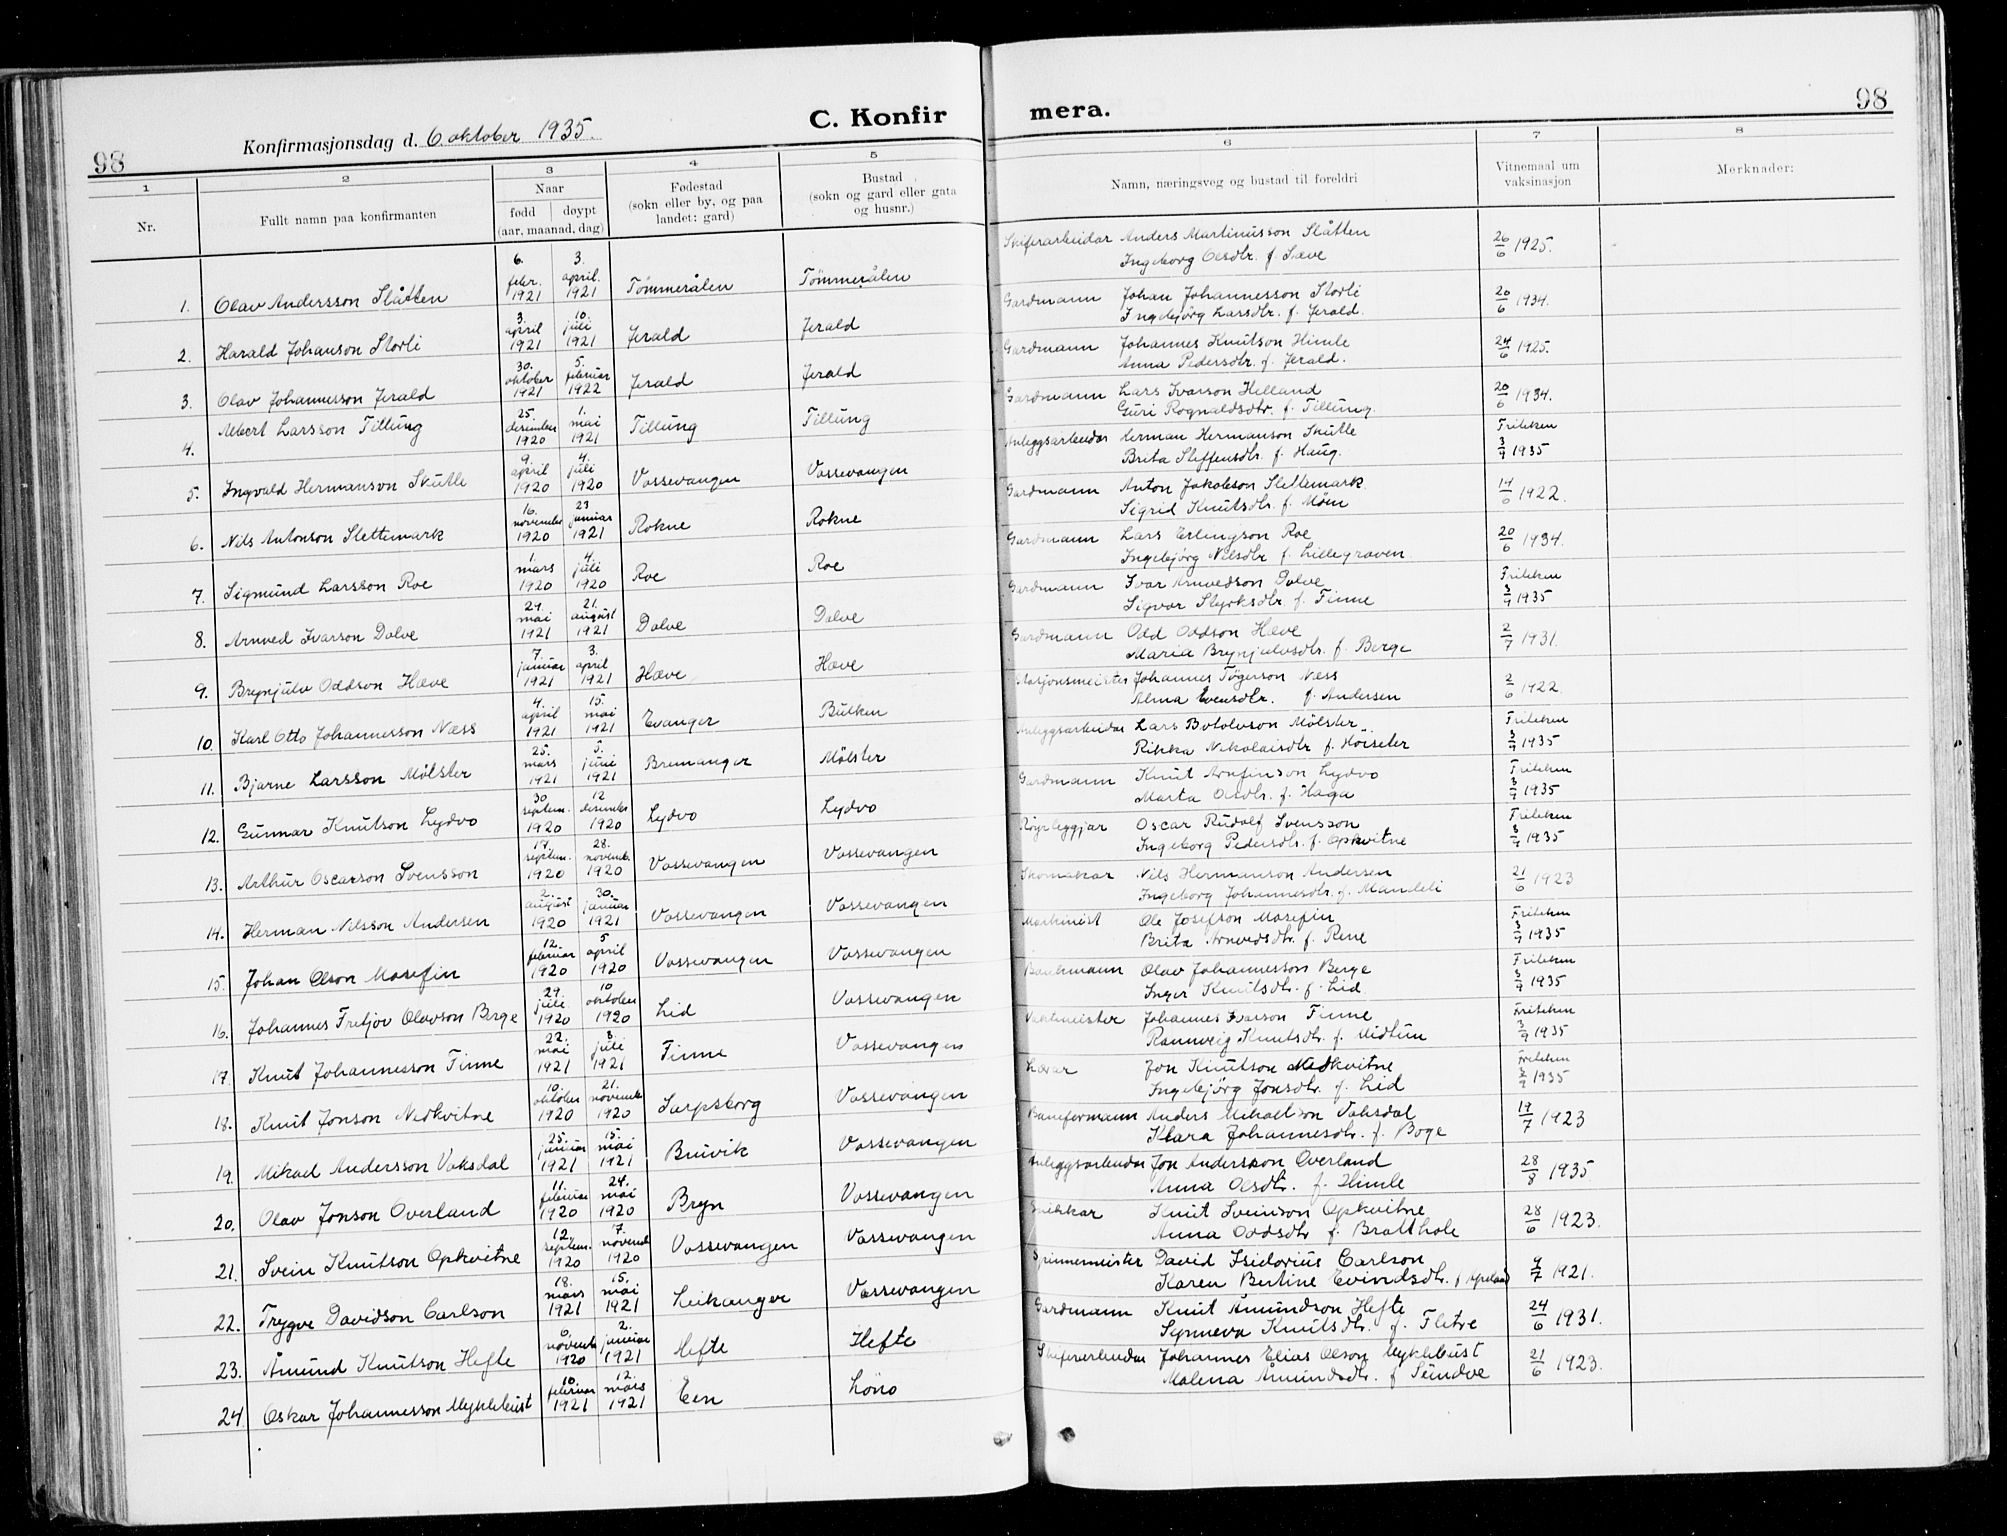 98
Konfirmasjonsdag d. 6 oktober 1935.
C. Konfir
mera.
98
1
2
3
4
5
6
7
8
Nr.
Fullt namn paa konfirmanten
Naar
fødd
døypt
(aar, maanad, dag)
Fødestad
(sokn eller by, og paa
landet: gard)
Bustad
(sokn og gard eller gata
og husnr.)
Namn, næringsveg og bustad til foreldri
Vitnemaal um
vaksinasjon
Merknader:
1. Olav Andersson Slåtten 6. febr. 1921 3. april. 1921 Tömmerålen Tömmerålen
Skiferarbeidar Anders Martinusson Slåtten 26/6 1925.
Ingeborg Olsdtr. f. Sæve
2. Harald Johanson Storli 3. april 1921 10. juli 1921 Jerald Jerald
Gardmann Johan Johannesson Storli 20/6 1934.
Ingebjörg Larsdtr. f. Jerald.
3. Olav Johannesson Jerald 30. oktober 1921 5. februar 1922 Jerald Jerald
Gardmann Johannes Knutson Himle 24/6 1925.
Anna Pedersdtr. f. Jerald.
4. Albert Larsson Tillung 25. desember 1920 1. mai 1921 Tillung Tillung
Gardmann Lars Ivarson Helland 20/6 1934.
Guri Rognaldsdtr. f. Tillung.
5. Ingvald Hermanson Skutle 9. april 1920 4. juli 1920 Vossevangen Vossevangen
Anleggsarbeidar Herman Hermanson Skutle Friteken
Brita Steffensdtr. f. Haug. 3/9 1935
6. Nils Antonson Slettemark 16. november 1920 23 januar 1921 Rokne Rokne
Gardmann Anton Jakobson Slettemark 14/6 1922.
Sigrid Knutsdtr. f. Möen
7. Sigmund Larsson Roe 1. mars 1920 4. juli 1920 Roe Roe
Gardmann Lars Erlingson Roe 20/6 1934.
Ingebjörg Nilsdtr f. Lillegraven
8. Arnved Ivarson Dolve 29. mai 1921 21. august 1921 Dolve Dolve
Gardmann Ivar Arnvedson Dolve Friteken
Sigvor Styrksdtr. f. Finne 3/9 1935
9. Brynjulv Oddson Hæve 7. januar 1921 3. april 1921 Hæve Hæve
Gardmann Odd Oddson Hæve 2/7 1931.
Maria Brynjulvsdtr. f. Berge
10. Karl Otto Johannesson Næss 4. april 1921 15. mai 1921 Evanger Bulken
Stasjonsmeister Johannes Tögerson Næss 2/6 1922.
Alma Evensdtr. f. Andersen
11. Bjarne Larsson Mölster 25. mars 1921 5. juni 1921 Bremanger Mölster
Anleggsarbeidar Lars Botolvson Mölster Friteken
Rikka Nikolaisdtr f. Höiseter 3/9 1935
12. Gunnar Knutson Lydvo 30 septem. 1920 12 desember 1920 Lydvo Lydvo
Gardmann Knut Arnfinson Lydvo Friteken
Marta Olsdtr. f. Haga 3/9 1935
13. Arthur Oscarson Svensson 19. septem. 1920 28. novemb. 1920 Vossevangen Vossevangen
Röyrleggjar Oscar Rudolf Svensson Friteken
Ingeborg Pedersdtr. f. Opkvitne 3/9 1935
14. Herman Nilsson Andersen 2. august 1920 30. januar 1921 Vossevangen Vossevangen
Skomakar Nils Hermanson Andersen 21/6 1923
Ingeborg Johannesdtr. f. Mandeli
15. Johan Olson Mosefin 12. februar 1920 5 april 1920 Vossevangen Vossevangen
Maskinist Ole Josefson Mosefin Friteken
Brita Arnvedsdtr. f. Rene 3/9 1935
16. Johannes Fretjov Olavson Berge 29. juli 1920 10 oktober 1920 Lid Vossevangen
Bankmann Olav Johannesson Berge Friteken
Inger Knutsdtr. f. Lid 3/9 1935
17. Knut Johannesson Finne 22. mai 1921 3. juli 1921 Finne Vossevangen
Vaktmeister Johannes Ivarson Finne Friteken
Rannveig Knutsdtr. f. Midtun 3/9 1935
18. Knut Jonson Nedkvitne 10. oktober 1920 21. november 1920 Sarpsborg Vossevangen
Lærar Jon Knutson Nedkvitne Friteken
Ingebjörg Jonsdtr. f. Lid 3/9 1935
19. Mikael Andersson Vaksdal 25. januar 1921 15. mai 1921 Bruvik Vossevangen
Baneformann Anders Mikaelson Vaksdal 19/7 1923
Klara Johannesdtr. f. Boge
20. Olav Jonson Overland 11. februar 1920 24. mai 1920 Bryn Vossevangen
Anleggsarbeidar Jon Andersson Overland 28/8 1935
Anna Olsdtr. f. Himle
21. Svein Knutson Opkvitne 12. septem. 1920 7. novemb 1920 Vossevangen Vossevangen
Snikkar Knut Sveinson Opkvitne 28/6 1923.
Anna Oddsdtr f. Bratthole
22. Trygve Davidson Carlson 18. mars 1921 15. mai 1921 Leikanger Vossevangen
Spinnemeister David Isidorius Carlson 4/7 1921.
Karen Bertine Evindsdtr. f
23. Åmund Knutson Hefte 6. novemb 1920 2. januar 1921 Hefte Hefte
Gardmann Knut Åmundson Hefte 24/6 1931.
Synneva Knutsdtr. f. Fletre
24 Oskar Johannesson Myklebust 10. februar 1921 12. mars 1921 Een Löno
Skiferarbeidar Johannes Elias Olson Myklebust 21/6 1923.
Malena Åmundsdtr. f Sundve